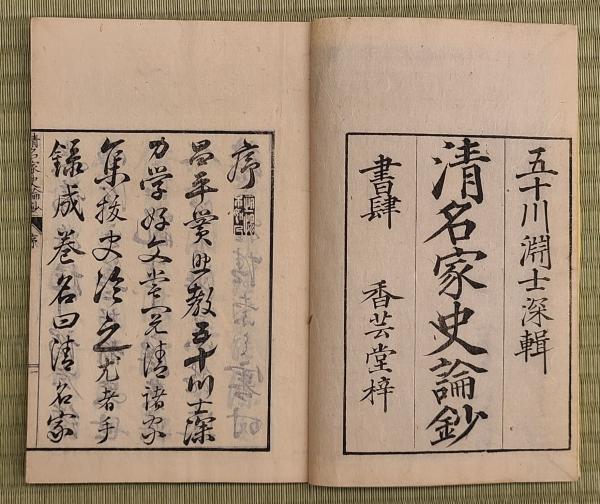 五十川淵士深輯
清名家史論鈔
書肆 香芸堂梓
序
昌平黌助教五十川士深
力学好文嘗見清諸家
集抜史論之尤者手
録成巻名曰清名家
清名家史論鈔 序